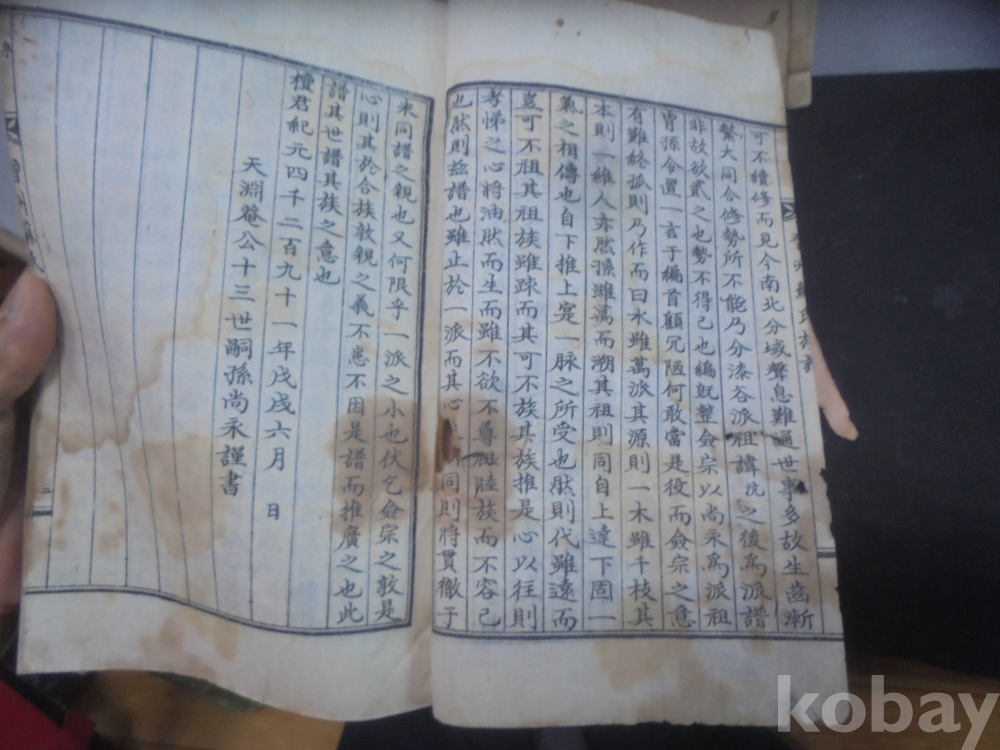 可不續修而見今南北分域聲息難通世事多故生齒漸
繁大同合修勢所不能乃分漆谷派祖諱沆之後爲派譜
非故欲貳之也勢不得已也編旣整僉宗以尚永爲派祖
胄孫令置一言于編首顧冗陋何敢當是役而僉宗之意
有難終孤則乃作而曰水雖萬派其源則一木雖千枝其
本則一維人亦然孫雖萬而溯其祖則同自上達下固一
氣之相傳也自下推上寔一脉之所受也然則代雖遠而
豈可不祖其祖族雖踈而其可不族其族推是心以往則
孝悌之心將油然而生而雖不欲不尊祖睦族而不容已
也然則玆譜也雖止於一派而其心同則將貫徹于
來同譜之親也又何限乎一派之小也伏乞僉宗之敦是
心則其於合族敦親之義不患不因是譜而推廣之也此
譜其世譜其族之意也
檀君紀元四千二百九十一年戊戌六月 日
天淵菴公十三世嗣孫尚永謹書
序
二
kobay